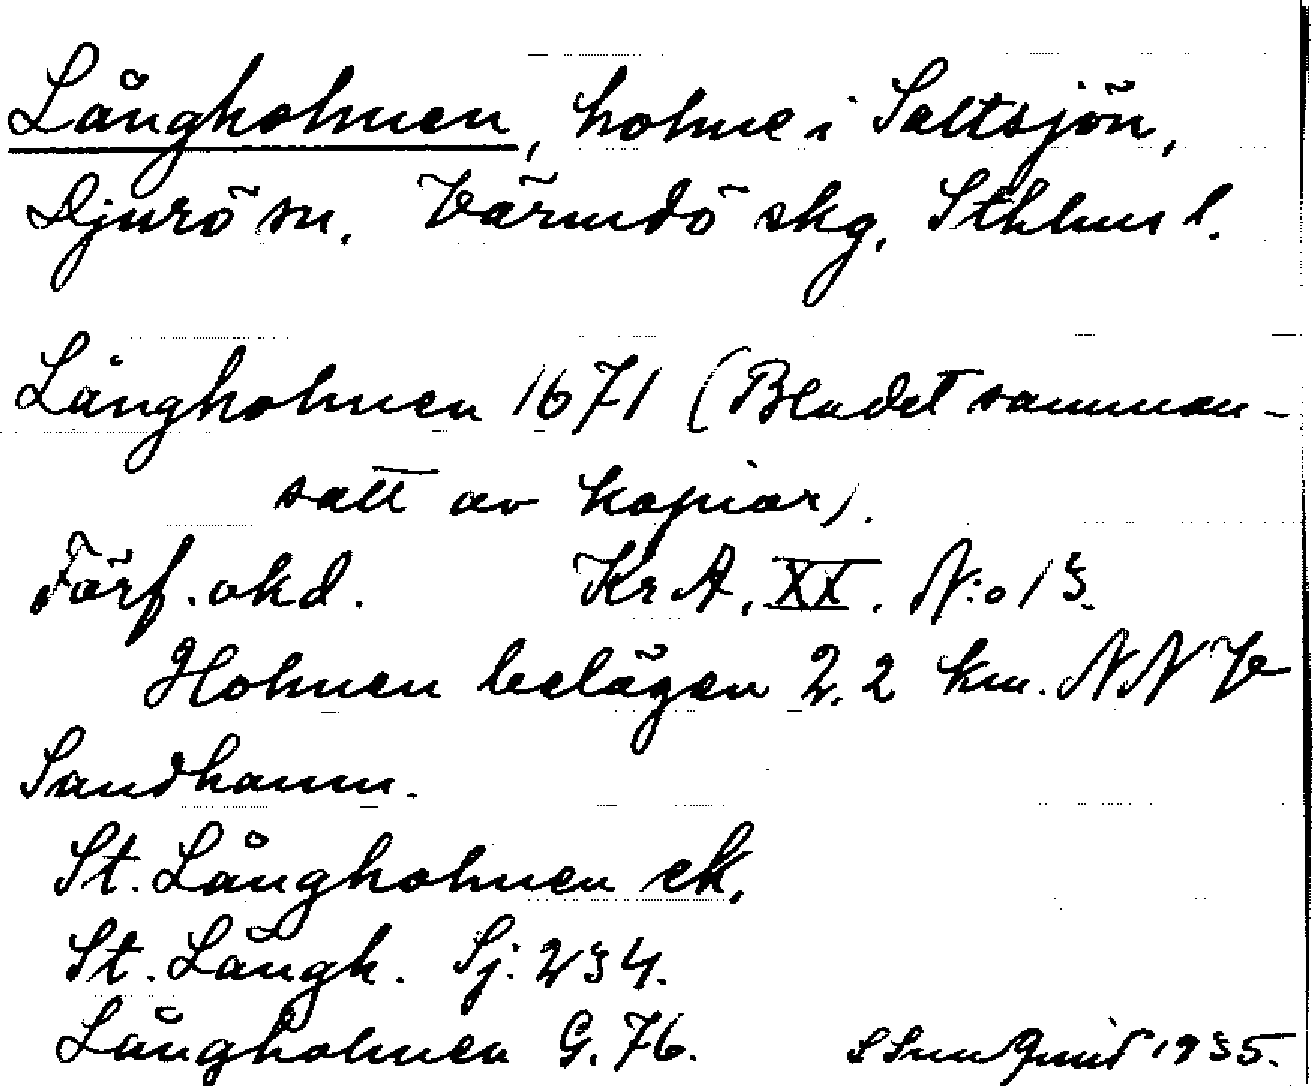 Långholmen, holme i Saltsjön,
Djurö sn. Värmdö skg. Sthlms l.
Långholmen 1671 (Bladet samman-
satt av kopior).
Förf. okd. Kr A. XX. N:o 13.
Holmen belägen 2.2 km. NN
Sandhamn.
St. Långholmen ek.
St. Långh. Sj. 234.
Långholmen G. 76. 1935.